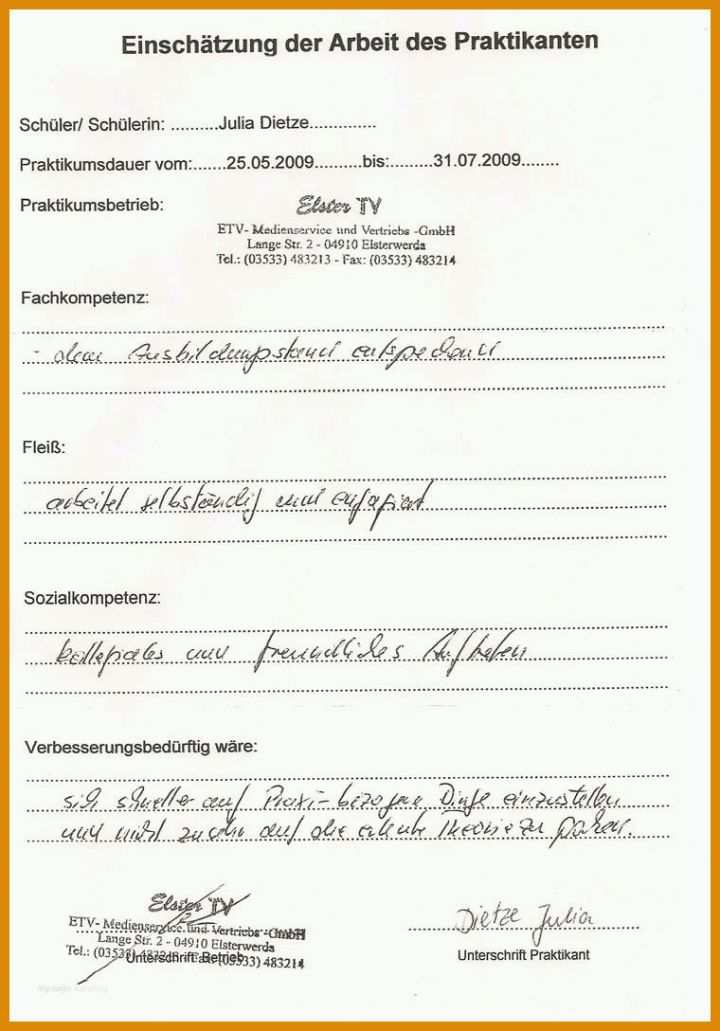 Einschätzung der Arbeit des Praktikanten
Schüler/ Schülerin: ..........Julia Dietze..............
Praktikumsdauer vom:.......25.05.2009..........bis:.........31.07.2009........
Praktikumsbetrieb:
Elster TV
ETV- Medienservice und Vertriebs -GmbH
Lange Str. 2 - 04910 Elsterwerda
Tel.: (03533) 483213 - Fax: (03533) 483214
Fachkompetenz:
- dem Ausbildungsstand entsprechend
Fleiß:
arbeitet selbständig und engagiert
Sozialkompetenz:
kollegiales und freundliches Auftreten
Verbesserungsbedürftig wäre:
sich schneller auf Praxis-bezogene Dinge einzustellen
und nicht zu sehr auf die Theorie zu
Elster TV
ETV- Medienservice und Vertriebs -GmbH
Lange Str. 2 - 04910 Elsterwerda
Tel.: (03533) 483213 - Fax: (03533) 483214
Unterschrift Betrieb
Dietze Julia
Unterschrift Praktikant